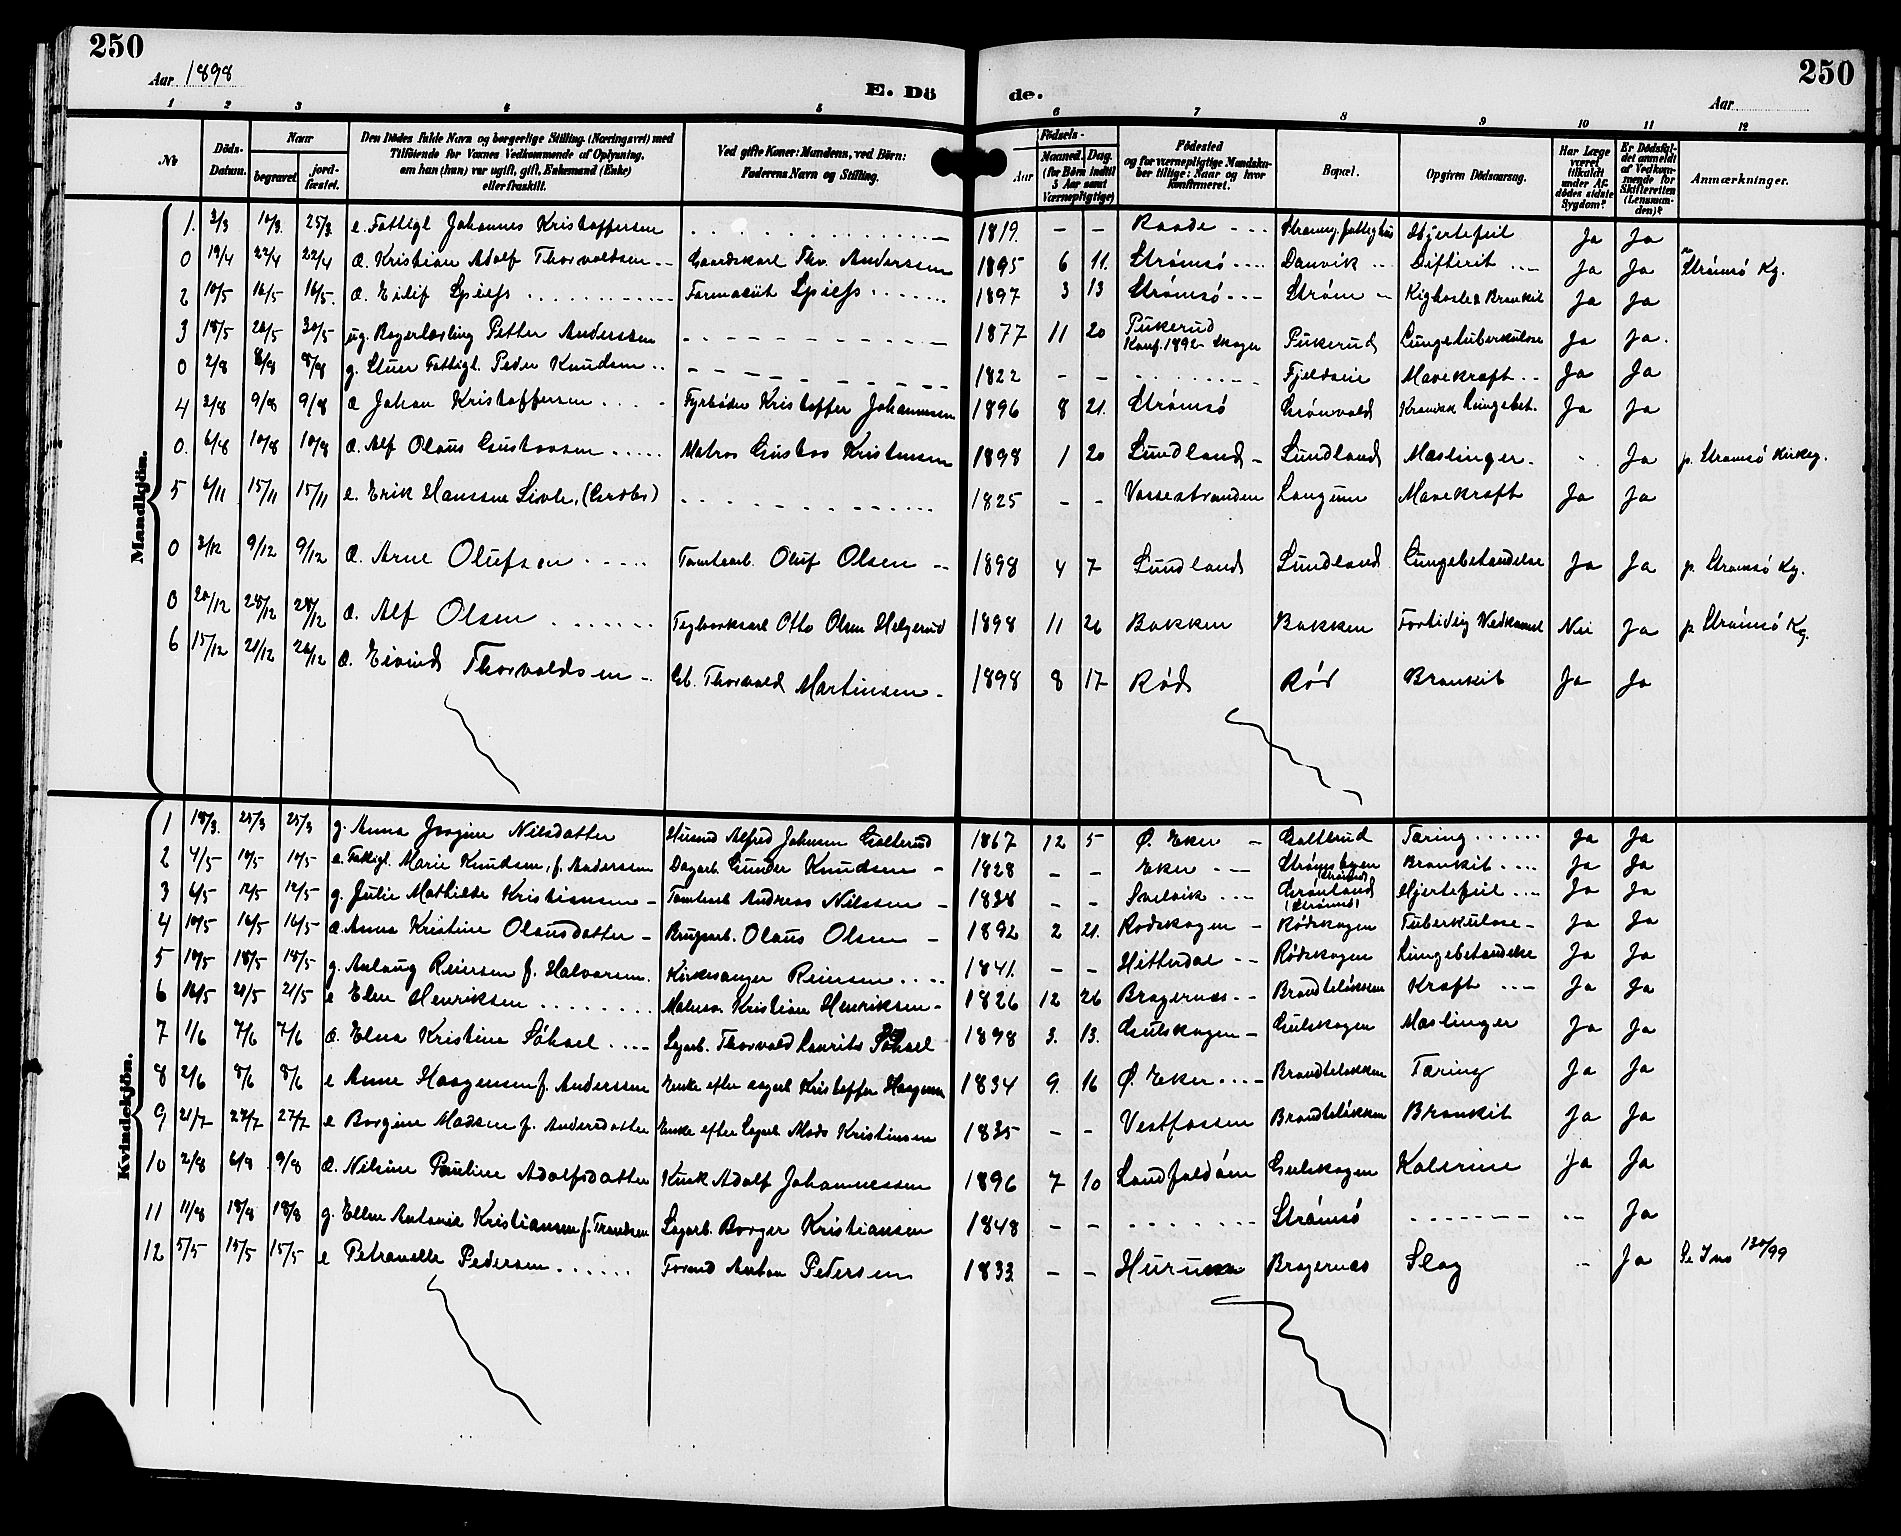 250
250
Aar 1898
E. Dö de.
Aar
1 2 3 4 5 6 7 8 9 10 11 12
No
Döds-Datum.
Naar
begravet
jord-fæstet.
Den Dödes fulde Navn og borgerlige Stilling (Næringsvei) med Tilföiende for Voxnes Vedkommende af Oplysning, om han (hun) var ugift, gift, Enkemand (Enke) eller fraskilt.
Ved gifte Koner: Mandens, ved Börn: Faderens Navn og Stilling.
Födsels-
Aar
Maaned. Dag.
(for Børn indtil 5 Aar samt Værnepligtige)
Födested og for værnepligtige Mandskaber tillige: Naar og hvor konfirmeret.
Bopæl.
Opgiven Dödsaarsag.
Har Læge været tilkaldt under Afdödes sidste Sygdom?
Er Dödsfaldet anmeldt af Vedkommende for Skifteretten (Lensmanden)?
Anmærkninger.
Mandkjön.
1. 3/3 10/3 25/3 e. Fattigl Johannes Kristoffersen 1819 – – Raade Strømsg. fattighus Hjertefeil Ja Ja
0 19/4 22/4 22/4 æ. Kristian Adolf Thorvaldsen Gaardskarl Thv. Anderssen 1895 6 11. Strømsø Danvik Difterit Ja Ja Strømsø Kg.
2 10/5 16/5 16/5. æ. Eilif Spiess Farmaceut Spiess 1897 3 13 Strømsø Strøm Kighoste & Bronkit Ja Ja
3 18/5 20/5 30/5 ug. Bagerlærling Petter Anderssen 1877 11 20 Pukerud Konf. 1892 Skoger Pukerud Lungetuberkulose Ja Ja.
0 2/8 8/8 8/8 g. Stuer Fattigl. Peder Knudsen 1822 – – Fjeldveie Mavekraft Ja Ja
4 2/8 9/8 9/8 æ Johan Kristoffersen Fyrbøder Kristoffer Johannesen 1896 8 21. Strømsø Grønvold Kronisk Lungebet. Ja Ja
0. 6/8 10/8 10/8 æ. Alf Olaus Gustavsen Matros Gustav Kristensen 1898 1 20 Sundland Sundland Mæslinger Ja p. Strømsø Kirkeg.
5 6/11 15/11 15/11 e. Erik Hanssen Sivle, 1825 – – Vossestranden Langum Mavekraft Ja Ja
0 3/12 9/12 9/12 æ. Arne Olufsen Tomtearb. Oluf Olsen 1898 4 7 Sundland Sundland Lungebetændelse Ja Ja p. Strømsø Kg.
0 20/12 28/12 28/12 æ. Alf Olsen Teglverkskarl Otto Olsen Helgerud 1898 11 26 Bakken Bakken Fortidlig Nedkomst Nei Ja p Strømsø Kg.
6 15/12 21/12 21/12 æ. Eivind Thorvaldsen Thorvald Martinsen 1898 8 17 Rød Rød Bronkit Ja Ja
Kvindekjön.
1 18/3. 25/3 25/3 g. Anna Jørgine Nilsdatter Husmd Alfred Johnsen Galterud 1867 12 5 Ø. Eker Galterud Tæring Ja Ja
2 4/5 10/5 10/5 e. Fattigl. Marie Knudsen, f. Anderssen Dagarb. Gunder Knudsen 1828 – – Eker Strømshagen (Strømsø) Bronkit Ja Ja
3 6/5 12/5 12/5 g. Julie Mathilde Kristiansen Tomtearb Andreas Nilssen 1838 – – Svelvik Grønland (Strømsø) Hjertefeil Ja Ja
4 10/5 16/5 16/5 æ. Anna Kristine Olausdatter Brugsarb. Olaus Olsen 1892 2 21. Rødskogen Rødskogen Tuberkulose Ja Ja
5 10/5 18/5 18/5 g. Aslaug Reiersen f. Halvorsen. Kirkesanger Reiersen 1841. – – Hitterdal Rødskogen Lungebetændelse Ja Ja
6 16/5 21/5 21/5 e Elen Henriksen Kristian Henriksen 1826 12 26 Bragernæs Brandteløkken Kræft Ja Ja
7 1/6 7/6 7/6 æ. Elna Kristine Såhoel Sagarb. Thorvald Laurits Såhoel 1898 3. 13. Gulskogen Gulskogen Mæslinger Ja Ja
8 2/6 8/6 8/6 e Anne Haagensen f. Anderssen Enke efter sagarb Kristoffer Haagensen 1834 9. 16 Ø. Eker Brandteløkken Tæring Ja Ja
9 21/7 27/7 27/7 e Borgine Madsen f. Andersdatter Enke efter Sagarb. Mads Kristensen 1835 – – Vestfossen Brandteløkken Bronkit Ja Ja
10 2/8 6/8 9/8 æ. Nilsine Pauline Adolfsdatter Kusk Adolf Johannessen 1896 7 10 Landfaldøen Gulskogen Kolerine Ja Ja
11 11/8 18/8 18/8 g. Ellen Antonie Kristiansen f. Trondsen Sagarb. Borger Kristiansen 1848 – – Strømsø Ja
12 5/5 15/5 15/5 e Petronelle Pedersen Formd Anton Pedersen 1833 – – Hurum Bragernæs Slag Ja Se Jno 130/99